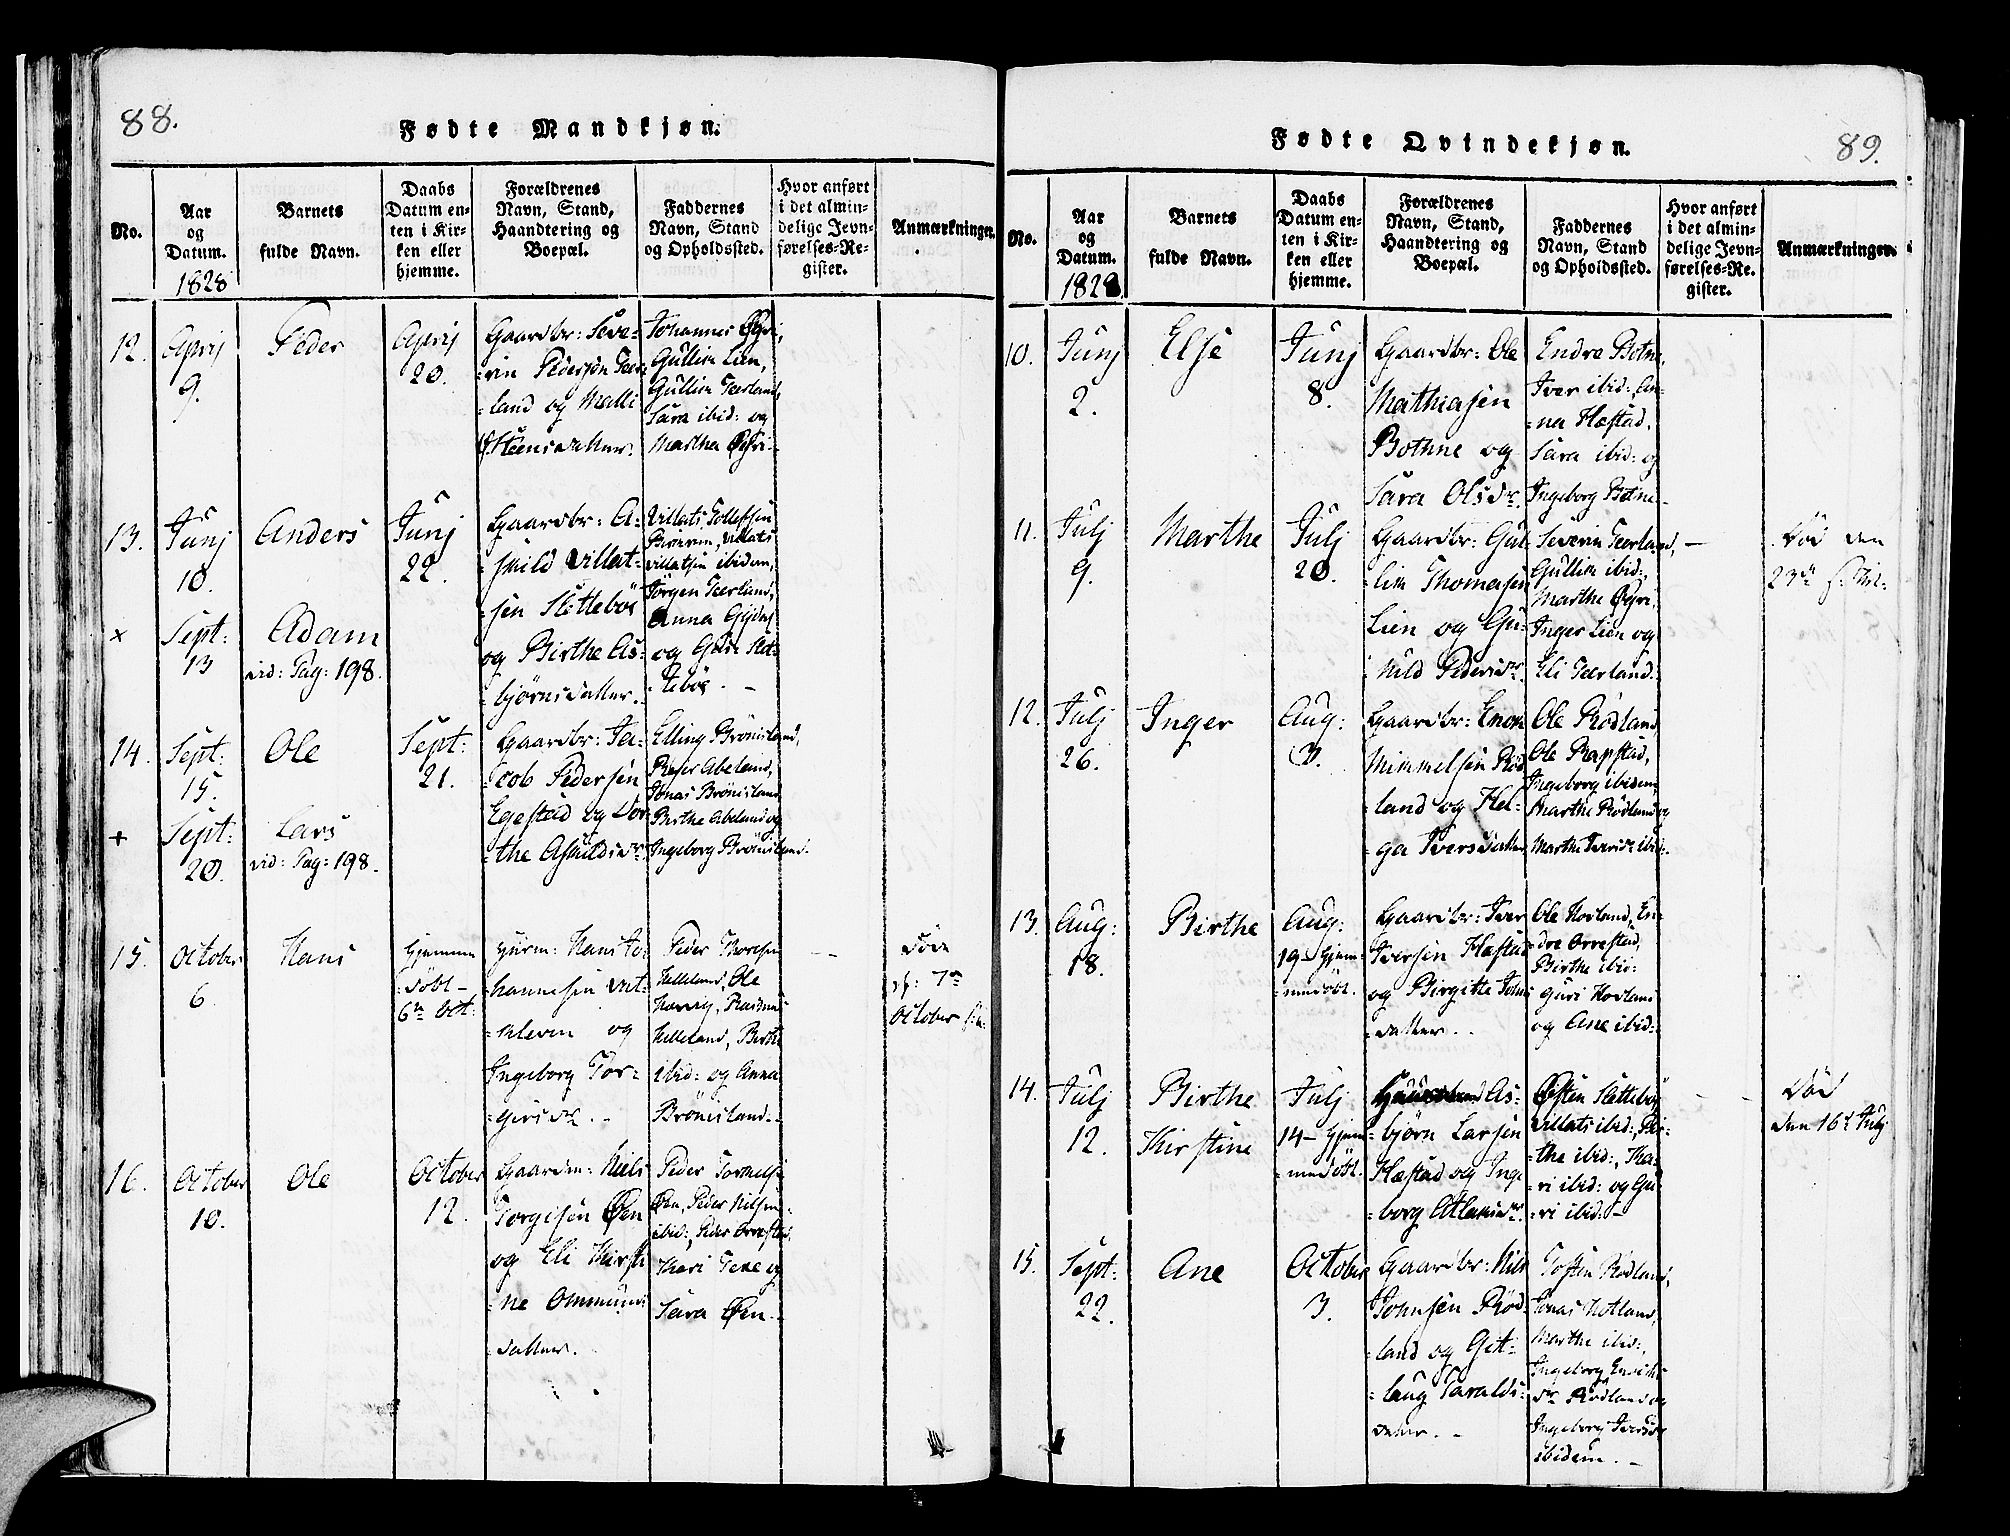 88.
Fødte Mandkjøn.
No.
Aar
og
Datum.
1828
Barnets
fulde Navn.
Daabs
Datum en-
ten i Kir-
ken eller
hjemme.
Forældrenes
Navn, Stand,
Haandtering og
Boepæl.
Faddernes
Navn, Stand
og Opholdssted.
Hvor anført
i det almin-
delige Jevn-
førelses-Re-
gister.
Anmærkninger.
12.
Aprij
9.
Peder
Aprij
20.
Gaardbr: Seve-
-rin Pedersen Teer-
-land og Malli
Steensdatter.
Johannes Øgri,
Gullich Lien,
Gullich Teerland,
Sara ibid: og
Martha Øgri.
13.
Junj
10.
Anders
Junj
22.
Gaardbr: A-
-skild Villat-
-sen Slettebøe
og Birthe As-
-bjørnsdatter.
Villats Tollefsen
Villats
Villatsen ibidem,
Jørgen Teerland,
Anna
og Guri Slet-
-tebøe. -
x
Sept:
13
Adam
vid: Pag: 198.
14.
Sept:
15.
Ole
Sept:
21.
Gaardbr: Ja-
-cob Pedersen
Egestad og Dor-
-the Askildsdr.
Elling Brönisland,
Peder Abeland,
Jonas Brönisland
Birthe Abeland og
Ingeborg Brönisland.
+
Sept:
20.
Lars
vid: Pag: 198.
15.
October
6.
Hans
Hjemme
døbt -
6te Oct:
Huusm: Hans Jo-
-hannesen
-kleven og
Ingeborg Tor-
-girsdr. -
Peder Thorsen
Helleland, Ole
Rasmus
Helleland, Birthe
ibid: og Anna
Brönisland. -
- -
Døde
d: 7de
October
16.
October
10.
Ole
October
12.
Gaardm: Niels
Torgisen Øen
og Eli Kirsti-
-ne Ommunds-
-datter.
Peder Tormodsen
Øen, Peder Nilsen
ibid:, Peder Orrestad,
Kari Tene og
Sara Øen. -
89.
Fødte Qvindekjøn.
No.
Aar
og
Datum.
1828
Barnets
fulde Navn.
Daabs
Datum en-
ten i Kir-
ken eller
hjemme.
Forældrenes
Navn, Stand,
Haandtering og
Boepæl.
Faddernes
Navn, Stand
og Opholdssted.
Hvor anført
i det almin-
delige Jevn-
førelses-Re-
gister.
Anmærkninger.
10.
Junj
2.
Else
Junj
8.
Gaardbr: Ole
Mathiasen
Bothne og
Sara Olsdr.
Endre Botne,
Iver ibid:, An-
-na Hæstad,
Sara ibid: og
Ingeborg Botne -
11.
Julj
9.
Marthe
Julj
20.
Gaardbr: Gul-
-lich Thomasen
Lien og Gu-
-nild Pedersdr.
Severin Teerland,
Gullich ibid:,
Marthe Øgri,
Inger Lien og
Eli Teerland.
-
Död den
23de
12.
Julj
26.
Inger
Aug:
3.
Gaardbr: Enok
Mimmelsen Rød-
-land og Hel-
-ga Iversdatter
Ole Rødland,
Ole Rapstad,
Ingeborg ibidem,
Marthe Rødland og
Marthe Iversdr ibid:
13.
Aug:
18.
Birthe
Aug:
19 - Hjem-
-medøbt.
Gaardbr: Iver
Iversen Hæstad
og Birgitte Johns-
-datter. -
Ole Hovland, En-
-dre Orrestad,
Birthe ibid:
Guri Hovland
og Ane ibid:
14.
Julj
12.
Birthe
Kirstine
Julj
14 - Hjem-
-medøbt.
As-
-bjørn Larsen
Hæstad og Inge-
-borg Atlaksdr.
Østen Slettebøe
Villats ibid:, Bir-
-the ibid:, Ka-
-ri ibid: og Gu-
-ri ibid: -
- -
Död
den 16d Julj
15.
Sept:
22.
Ane
October
3.
Gaardbr: Nils
Johnsen Rød-
-land og Git-
-laug Taralds-
-datter. -
Tosten Rødland,
Jonas Hotland,
Marthe ibid:,
Ingeborg
dr. Rødland og
Ingeborg Iversdr
ibidem. -